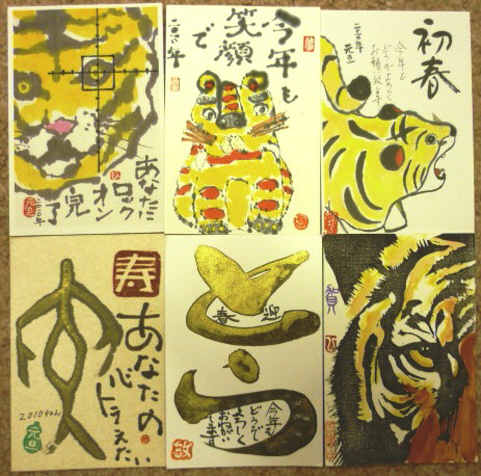 あなたに
ロック
オン
完了
二〇一〇年
元旦
今年も
笑顔
で
二〇一〇年
初春
今年も
どうぞよろしく
お願い致します
二〇一〇年
元旦
寿
あなたの
心
トラえたい
元旦
迎春
今年も
どうぞ
よろしく
お願い
します
賀